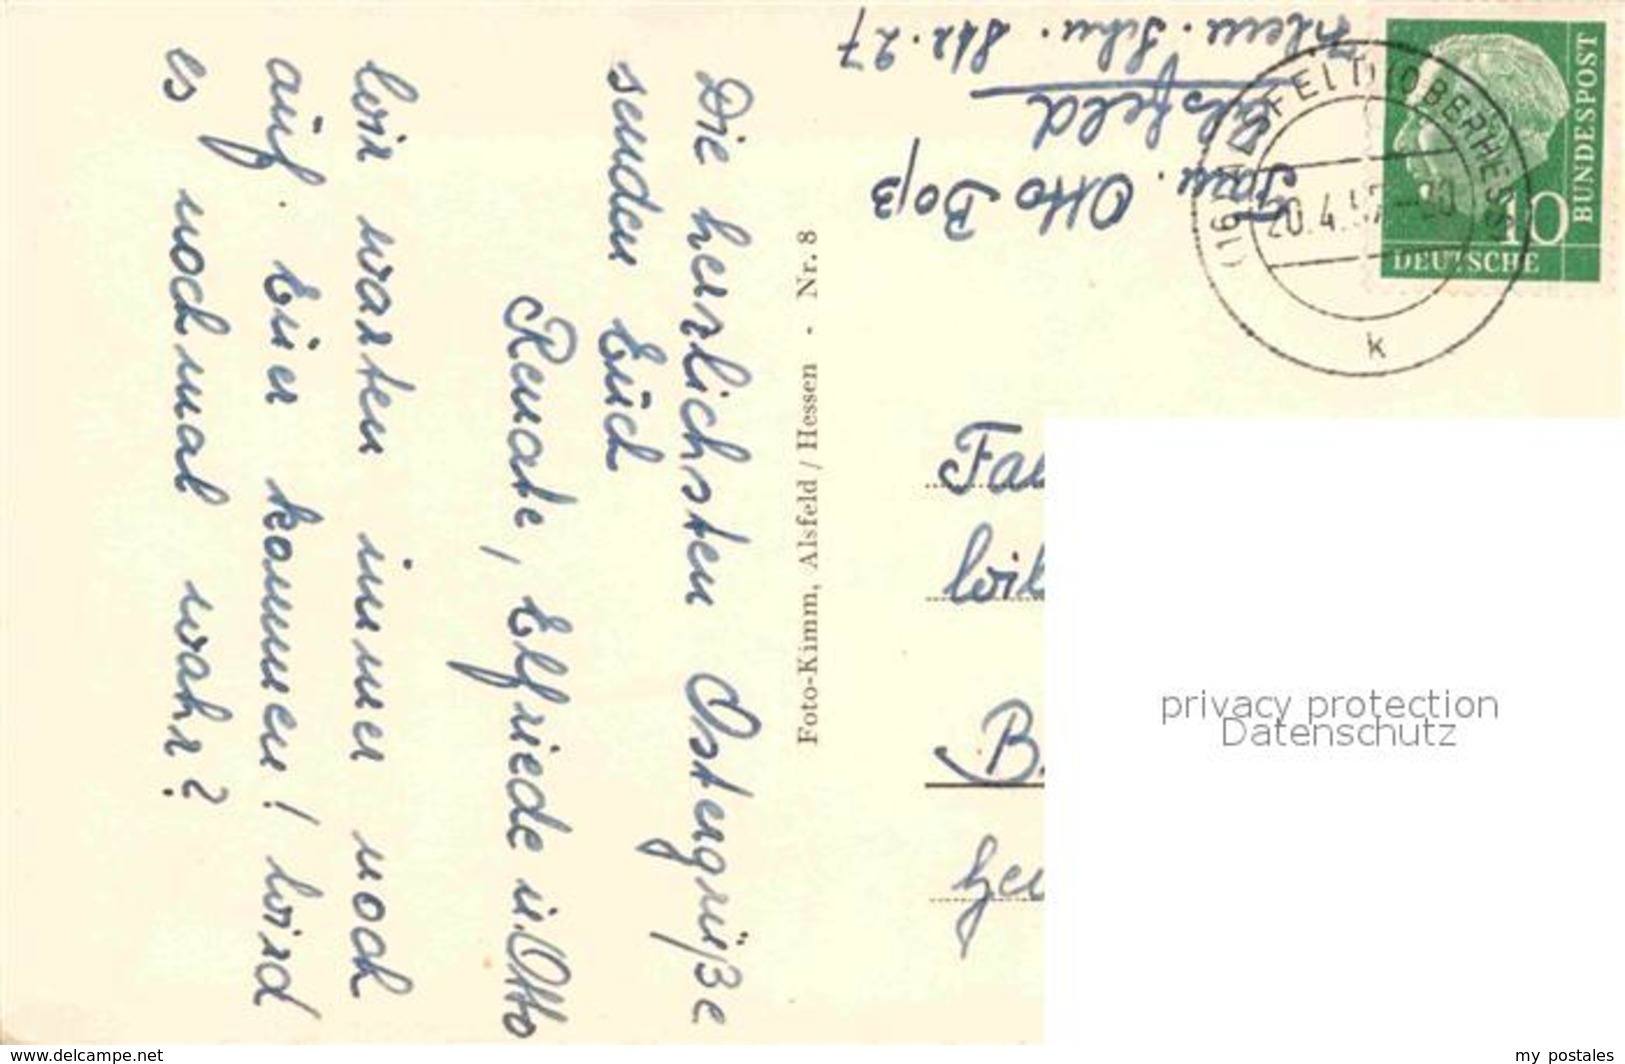 Die herrlichsten Ostergrüße
senden Eüch
Renate, Elfriede u. Otto
Wir warten immer noch
aüf Eüer kommen! Wird
es noch mal wahr?
Foto-Kimm, Alsfeld / Hessen · Nr. 8
Fam. Otto Boß
Alsfeld
Str. 27
(16) ALSFELD (OBERHESS)
20.4.57
k
10
DEUTSCHE
BUNDESPOST
privacy protection
Datenschutz
www.delcampe.net
my_postales